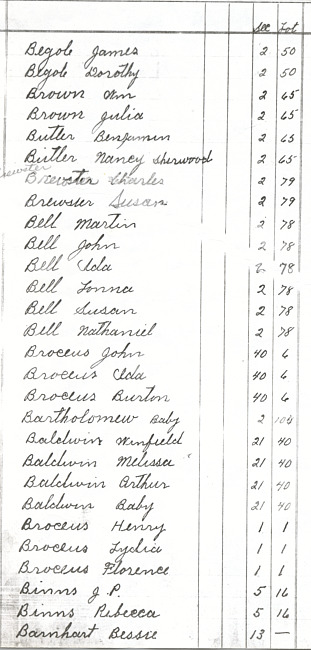 Sec Lot
Begole James 2 50
Begole Dorothy 2 50
Brown Wm 2 65
Brown Julia 2 65
Butler Benjamin 2 65
Butler Nancy Sherwood 2 65
Brewster Charles 2 79
Brewster Susan 2 79
Bell Martin 2 78
Bell John 2 78
Bell Ada 2 78
Bell Lonna 2 78
Bell Susan 2 78
Bell Nathaniel 2 78
Broceus John 40 6
Broceus Ada 40 6
Broceus Burton 40 6
Bartholomew Baby 2 104
Baldwin Winfield 21 40
Baldwin Melissa 21 40
Baldwin Arthur 21 40
Baldwin Baby 21 40
Broceus Henry 1 1
Broceus Lydia 1 1
Broceus Florence 1 1
Binns J.P. 5 16
Binns Rebecca 5 16
Barnhart Bessie 13 —